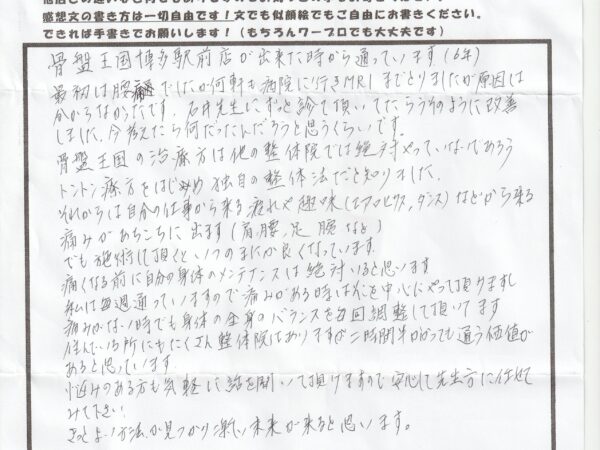 感想文の書き方は一切自由です！文でも似顔絵でもご自由にお書きください。
できれば手書きでお願いします！（もちろんワープロでも大丈夫です）
骨盤王国博多駅前店が出来た時から通っています（6年）
最初は腰痛でしたが何軒も病院に行きMRIまでとりましたが原因は
分からなかったです。石井先生にずっと診て頂いてたらうそのように改善
しました。今考えたら何だったんだろうと思うくらいです。
骨盤王国の治療方は他の整体院では絶対やっていないであろう
トントン療方をはじめ独自の整体法だと知りました。
それからは自分の仕事から来る疲れや趣味（エアロビクス,ダンス）などから来る
痛みがあちこちに出ます（肩,腰,足,腕など）
でも施術して頂くといつのまにか良くなっています。
痛くなる前に自分の身体のメンテナンスは絶対いると思います
私は毎週通っていますので痛みがある時はそこを中心にやって頂けますし
痛みがない時でも身体の全身のバランスを毎回調整して頂いてます
住んでいる所にもたくさん整体院はありますが二時間半かかっても通う価値が
あると思っています。
悩みのある方も気軽に話を聞いて頂けますので安心して先生方に任せ
みて下さい！
きっとよい方法が見つかり楽しい未来が来ると思います。